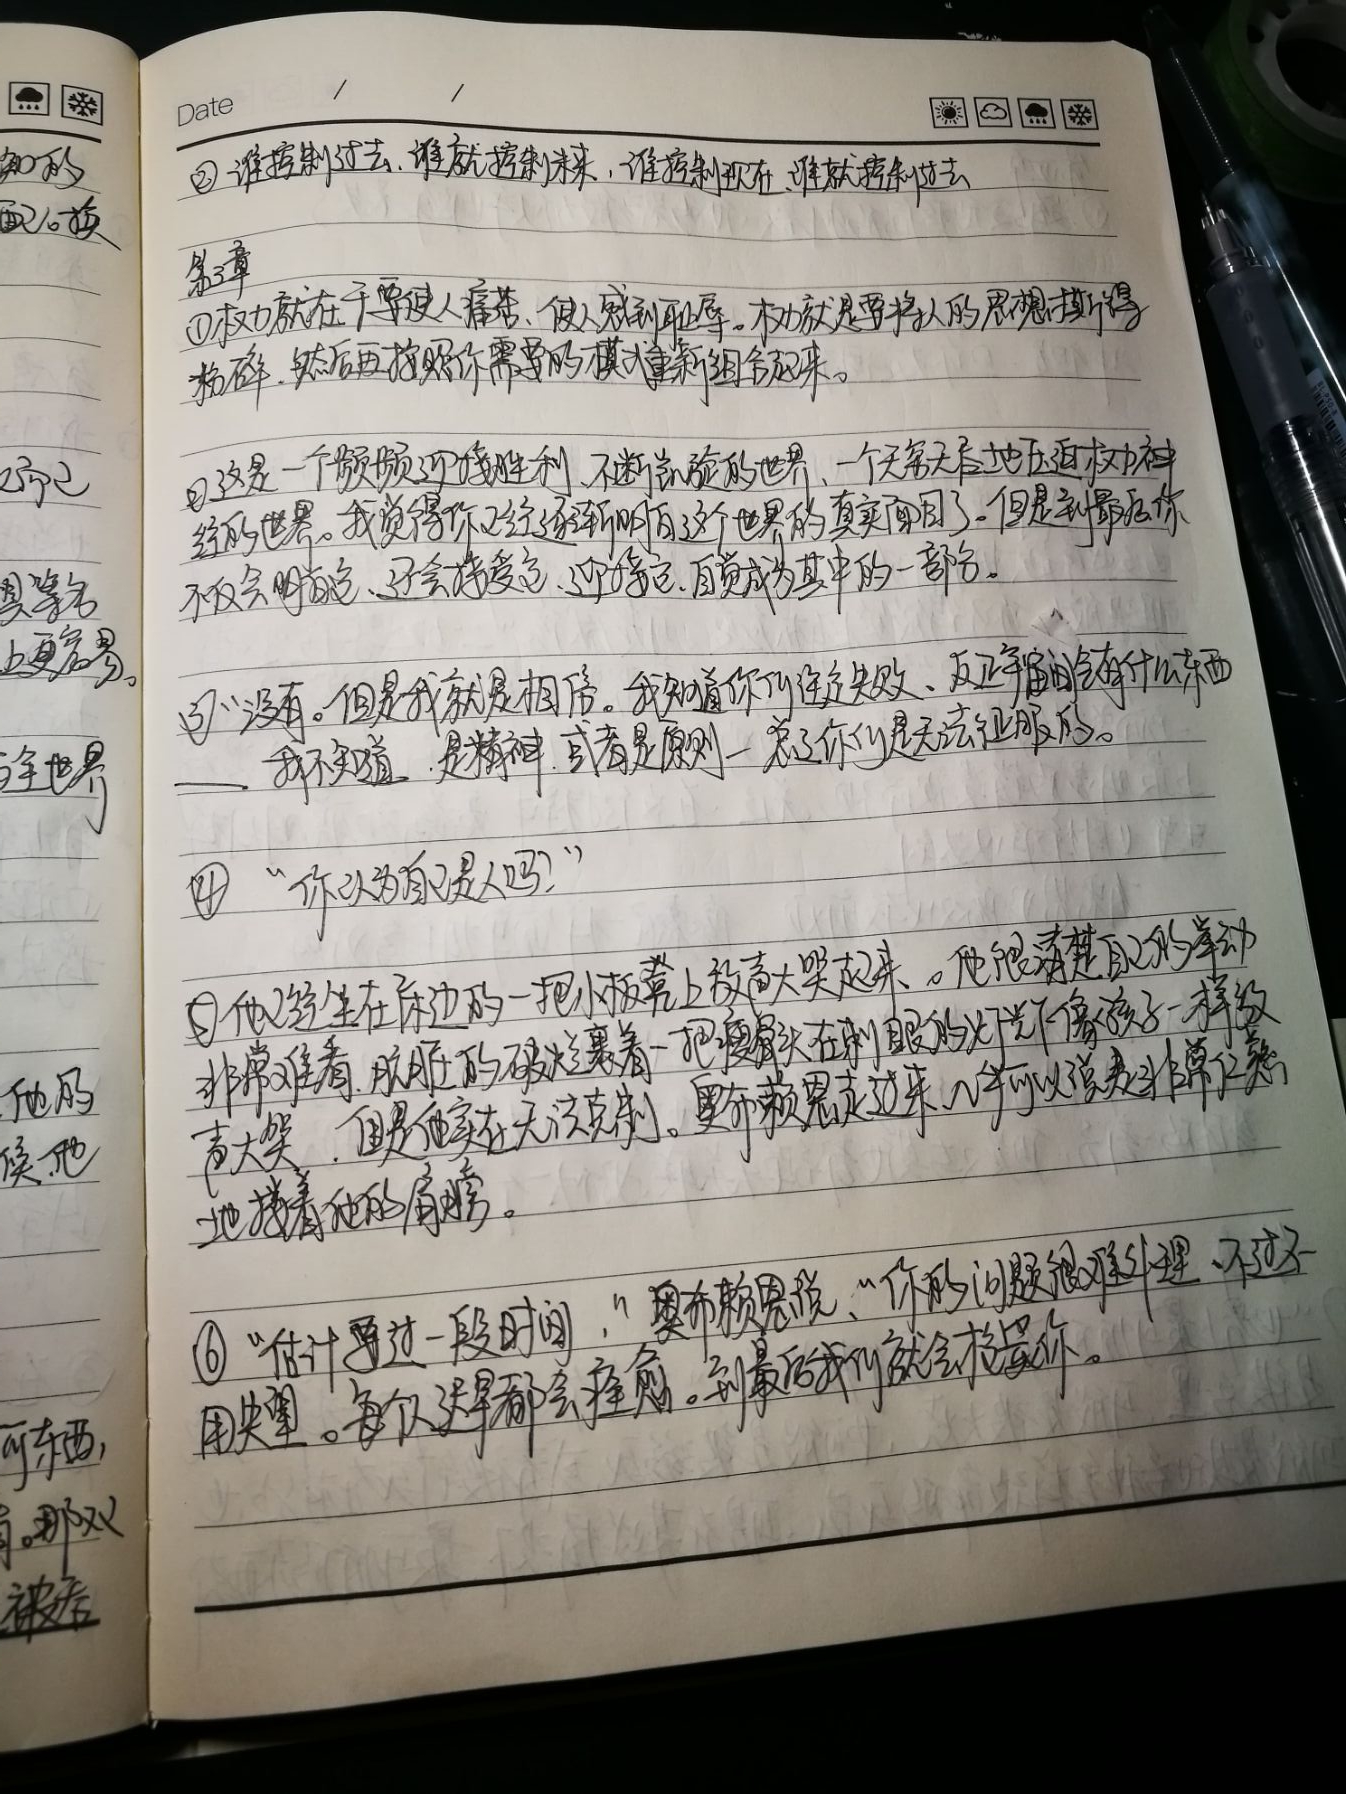 知的
配。换
己而已
具等名
上更容易。
与全世界
他的
候他
何东西,
肯。那双
被告
Date / /
② 谁控制过去、谁就控制未来,谁控制现在、谁就控制过去
第3章
①权力就在于要使人痛苦、使人感到耻辱。权力就是要将人的思想撕得
粉碎、然后再按照你需要的模式重新组合起来。
②这是一个频频迎接胜利、不断凯旋的世界、一个天常天后地压迫权力神
经的世界。我觉得你已经逐渐明白这个世界的真实面目了。但是到最后你
不仅会明白它、还会接受它、迎接它、自觉成为其中的一部分。
③“没有。但是我就是相信。我知道你们注定失败、反正宇宙间会有什么东西
—— 我不知道、是精神、或者是原则—总之你们是无法征服的。
④ “你认为自己是人吗?”
⑤他已经坐在床边的一把小板凳上放声大哭起来、。他很清楚自己的举动
非常难看、肮脏的破烂裹着一把瘦骨头在刺眼的灯光下像孩子一样放
声大哭、但是他实在无法克制。奥布赖恩走过来、几乎可以说是非常仁慈
地搂着他的肩膀。
⑥ “估计要过一段时间,”奥布赖恩说、“你的问题很难处理、不过不
用失望。每个人迟早都会痊愈。到最后我们就会枪毙你。